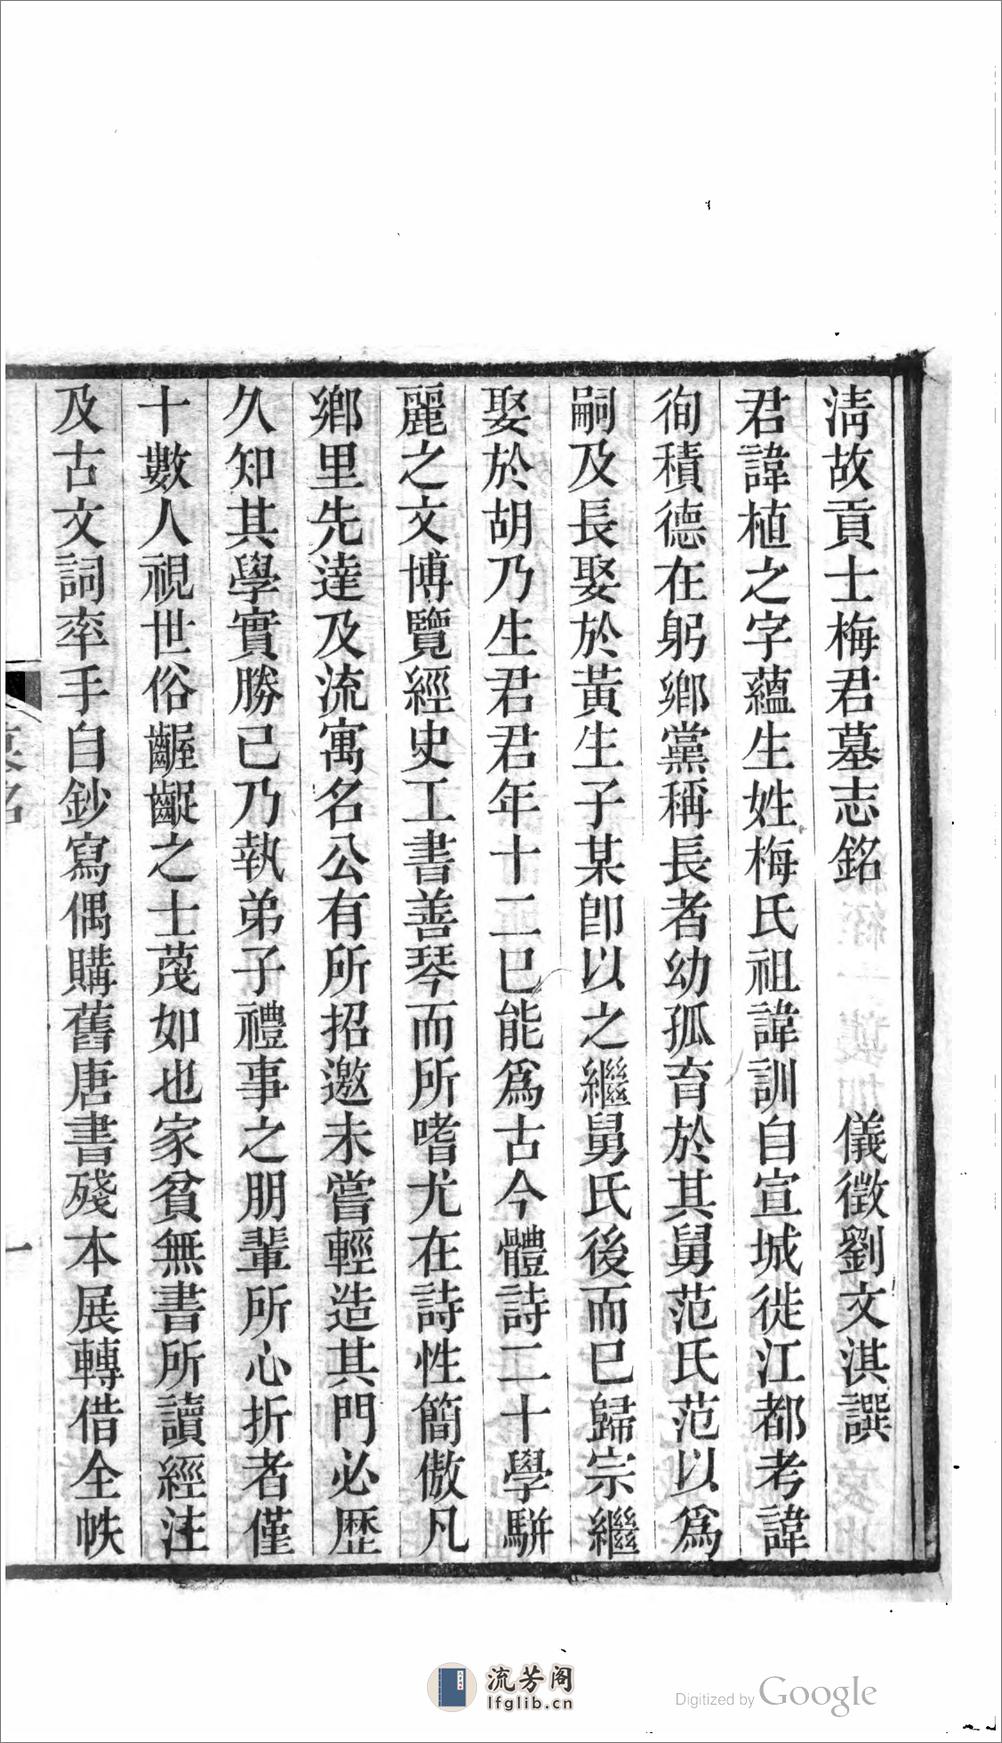 清故貢士梅君墓志銘　儀徵劉文淇譔
君諱植之字蘊生姓梅氏祖諱訓自宣城徙江都考諱
徇積德在躬鄉黨稱長者幼孤育於其舅范氏范以爲
嗣及長娶於黃生子某卽以之繼舅氏後而已歸宗繼
娶於胡乃生君君年十二已能爲古今體詩二十學駢
麗之文博覽經史工書善琴而所嗜尤在詩性簡傲凡
鄉里先達及流寓名公有所招邀未嘗輕造其門必歷
久知其學實勝已乃執弟子禮事之朋輩所心折者僅
十數人視世俗齷齪之士蔑如也家貧無書所讀經注
及古文詞率手自鈔寫偶購舊唐書殘本展轉借全帙
墓銘
一
流芳阁
lfglib.cn
Digitized by Google